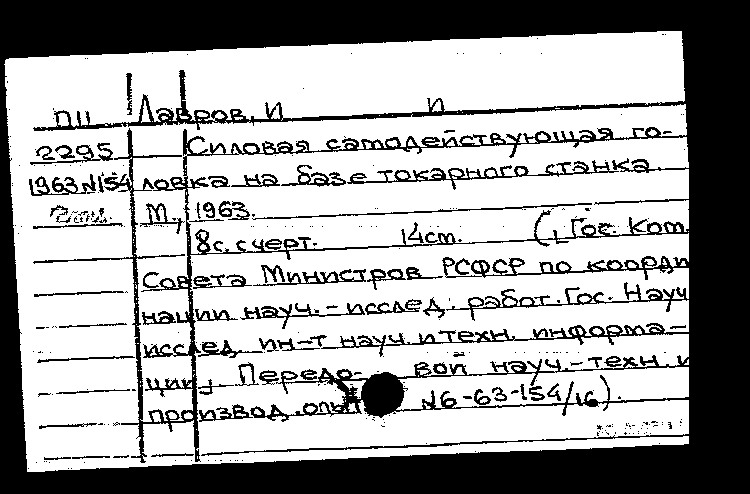 П11 Лавров, И И
2295 Силовая самодействующая го-
1963 N154 ловка на базе токарного станка.
М., 1963.
8с. с черт. 14см. ([Гос. Ком.
Совета Министров РСФСР по коорди
нации науч.-исслед. работ. Гос. Науч
исслед. ин-т науч. и техн. информа-
ции]. Передо- вой науч.-техн. и
производ. опыт N6-63-154/16).